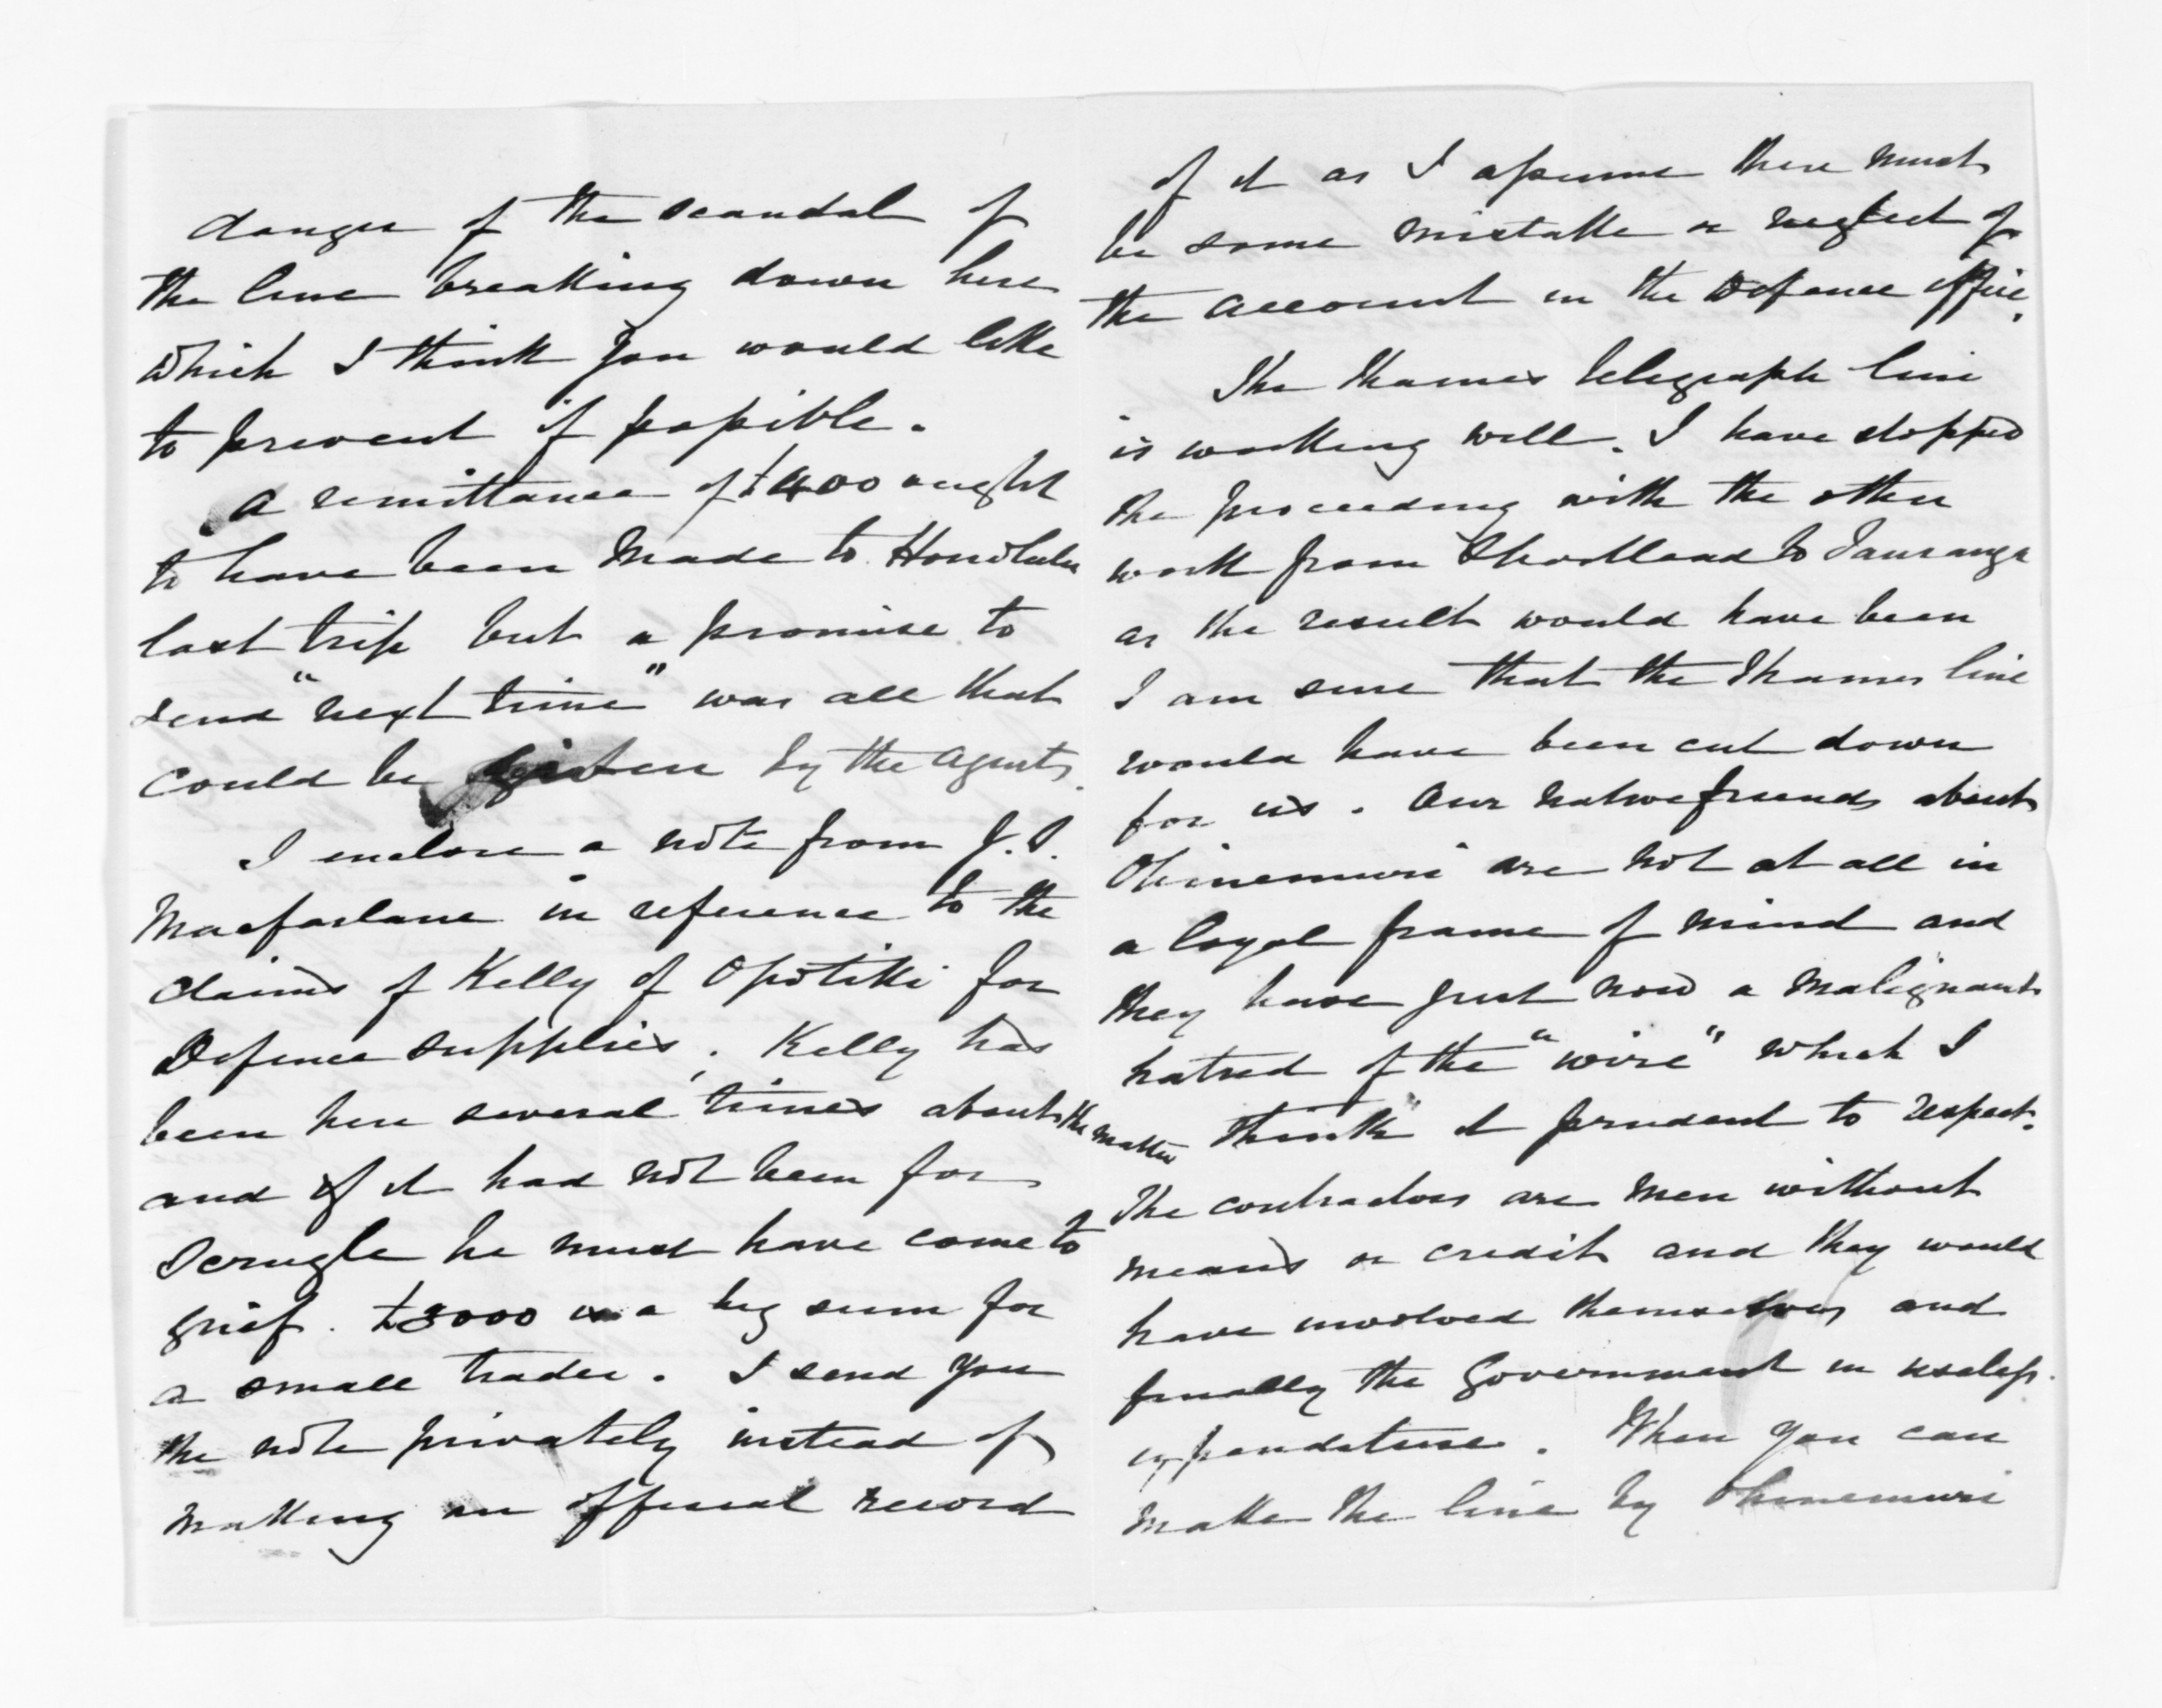 danger of the scandal of
the line breaking down here
which I think you would like
to prevent if possible.
A remittance of £400 ought
to have been made to Honolulu
last trip but a promise to
send "next time" was all that
could be given by the agents.
I enclose a note from J. S.
Macfarlane in reference to the
claims of Kelly of Opotiki for
Defence supplies. Kelly has
been here several times about the matter
and if it had not been for
he must have come to
grief. £3000 is a big sum for
a small trader. I send you
the note privately instead of
making an official record
of it as I assume there must
be some mistake or neglect of
the account in the Defence office.
The Thames telegraph line
is working well. I have stopped
the proceeding with the other
work from Shortland to Tauranga
as the result would have been
I am sure that the Thames line
would have been cut down
for us. Our native friends about
Ohinemuri are not at all in
a loyal frame of mind and
they have just now a malignant
hatred of the "wire" which I
think it prudent to respect.
The contractors are men without
means or credit and they would
have involved themselves and
finally the Government in useless
expenditure. When you can
make the line by Ohinemuri